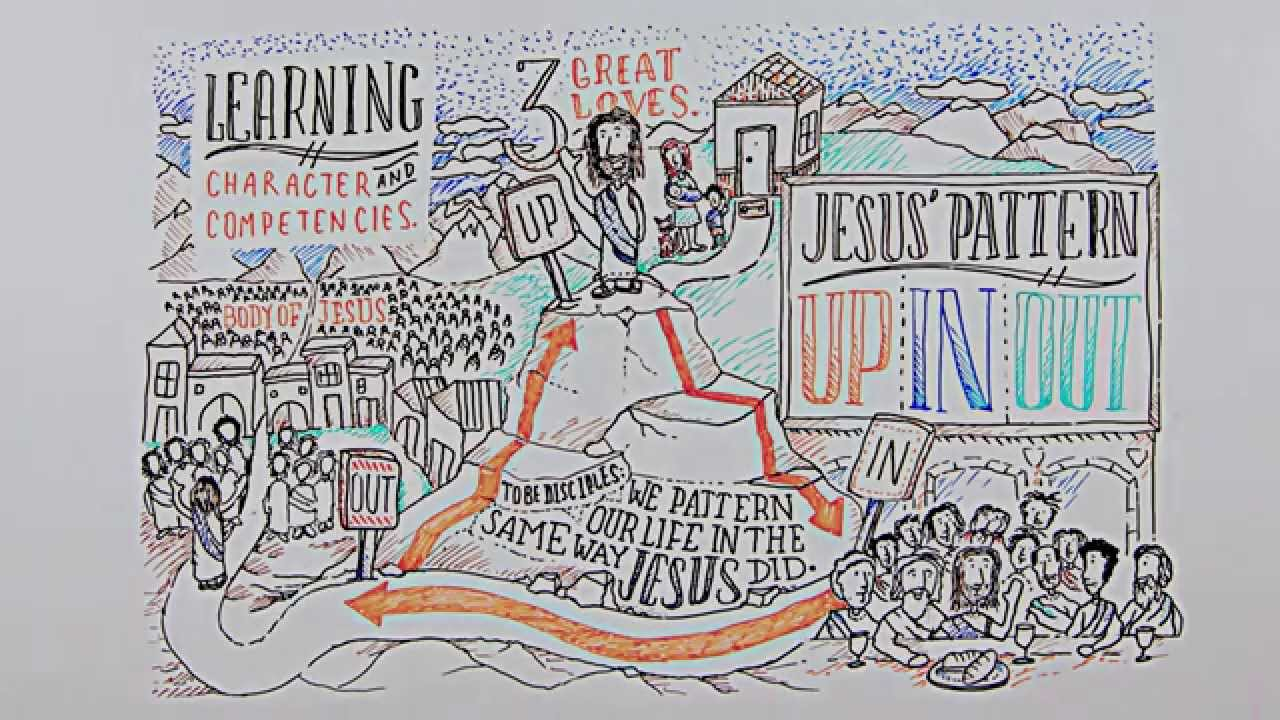 LEARNING
CHARACTER AND
COMPETENCIES.
3 GREAT
LOVES.
UP
JESUS' PATTERN
UP IN OUT
BODY OF JESUS
OUT
IN
TO BE DISCIPLES:
WE PATTERN
OUR LIFE IN THE
SAME WAY
JESUS DID.